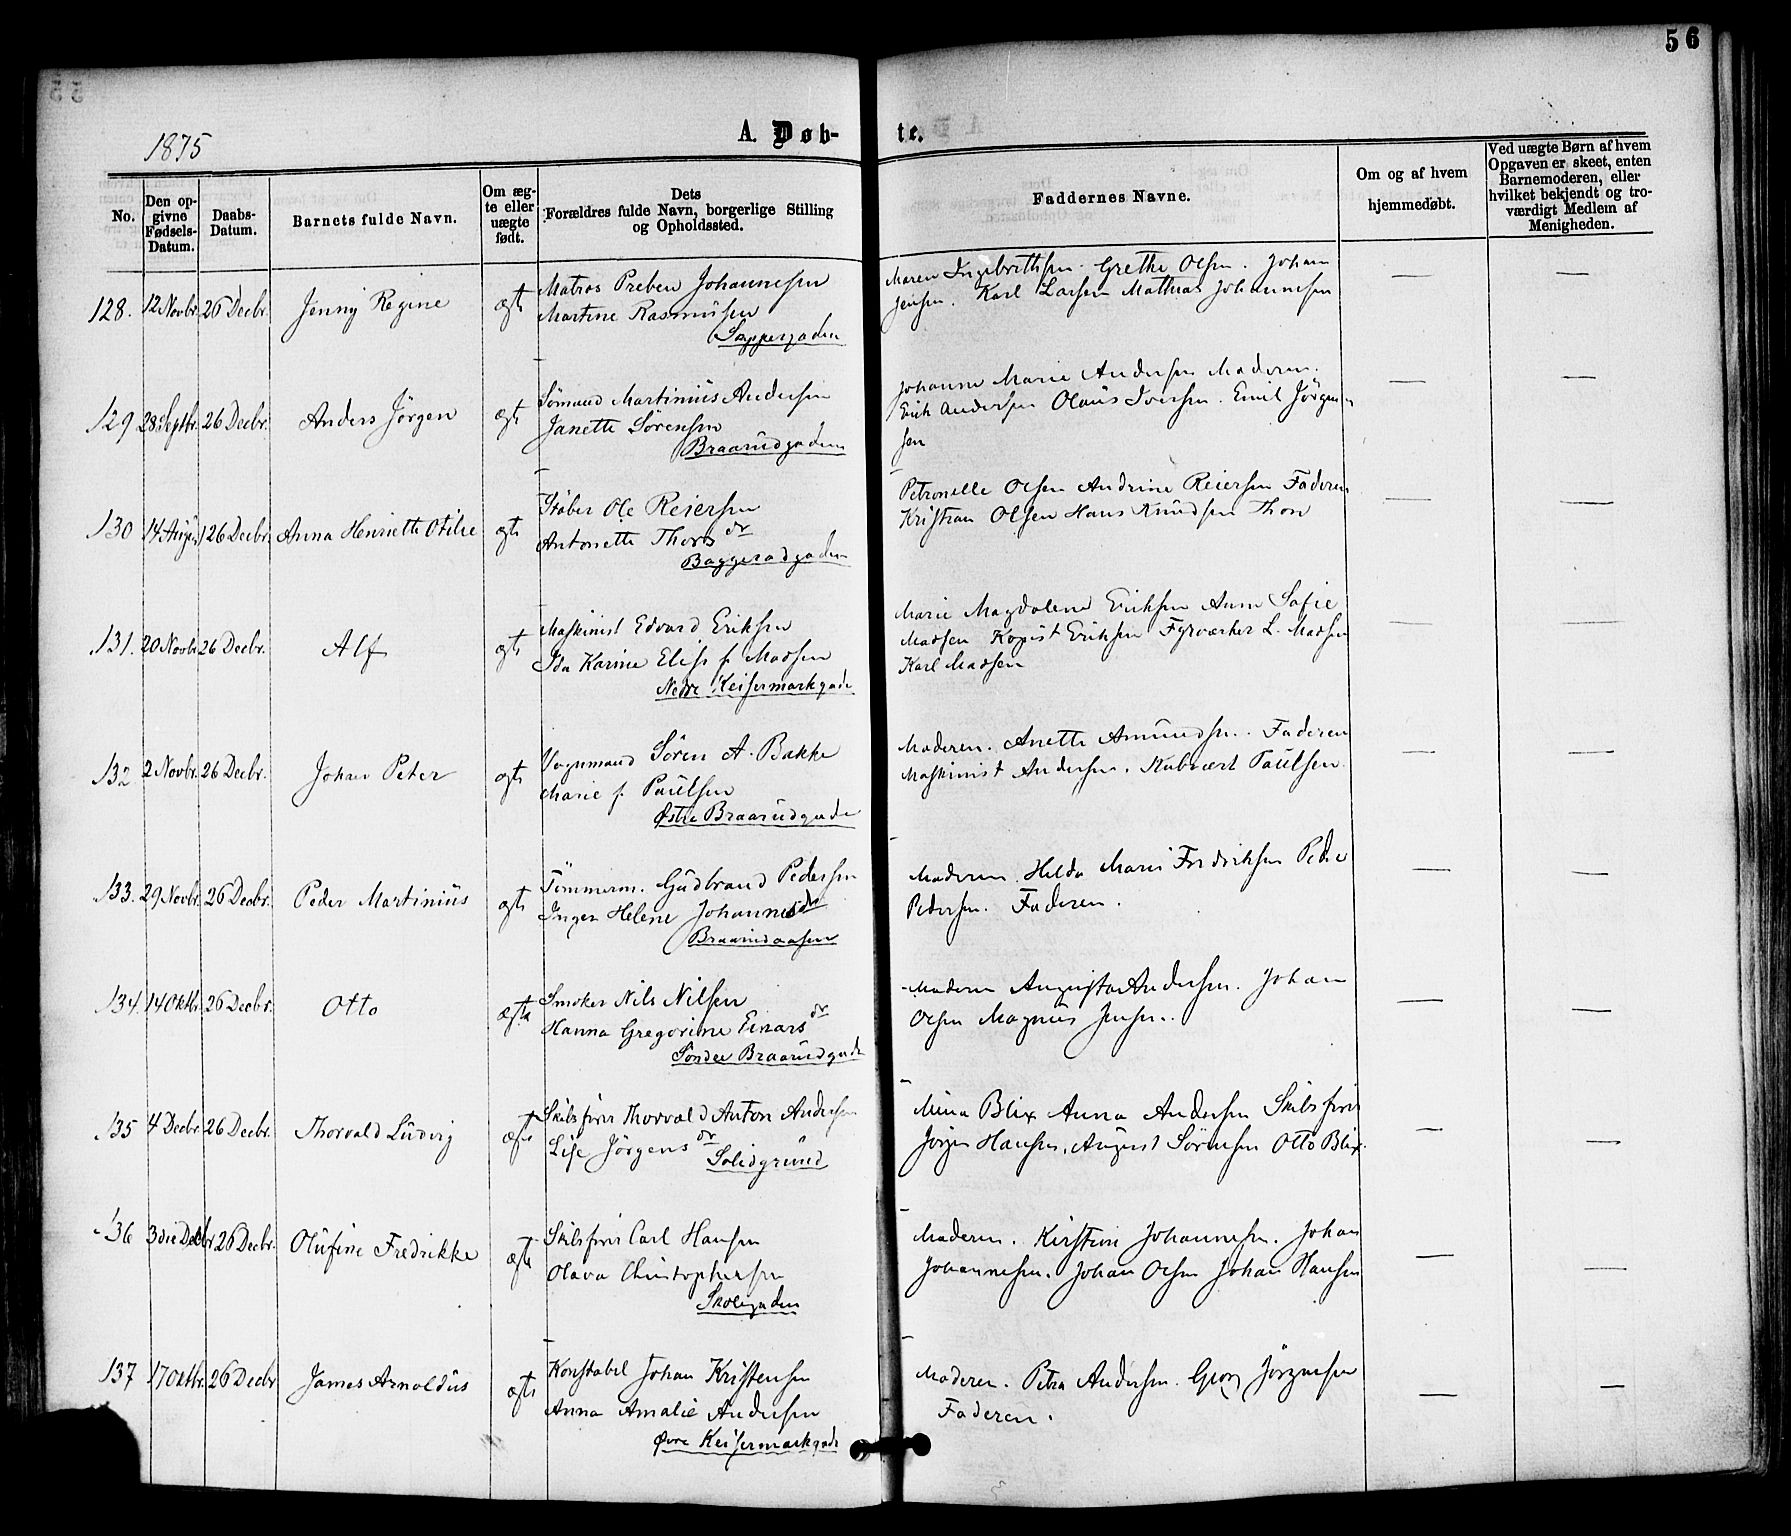 56
1875
A. Døbte.
No.
Den opgivne Fødsels-Datum.
Daabs-Datum.
Barnets fulde Navn.
Om ægte eller uægte født.
Dets Forældres fulde Navn, borgerlige Stilling og Opholdssted.
Faddernes Navne.
Om og af hvem hjemmedøbt.
Ved uægte Børn af hvem Opgaven er skeet, enten Barnemoderen, eller hvilket bekjendt og troværdigt Medlem af Menigheden.
128. 12 Novbr. 26 Decbr. Jenny Regine ægt Matros Preben Johannesen
Martine Rasmussen
Maren Ingebrethsen. Grethe Olsen. Johan
Jensen. Karl Larsen Mathias Johannesen
129 28 Septbr. 26 Decbr. Anders Jörgen ægt Sömand Martinius Andersen
Janette Sörensen
Braarudgaden
Johanne Marie Andersen Moderen.
Erik Andersen Olaus Iversen. Emil Jörgen
sen
130 14 August 26 Decbr. Anna Henriette Otilie ægt Støber Ole Reiersen
Antonette Thorsdr
Baggerødgaden
Petronelle Olsen Andrine Reiersen Faderen
Kristian Olsen Hans Knudsen Thon
131. 20 Novbr. 26 Decbr. Alf ægt Maskinist Edvard Eriksen
Ida Karine Elise f. Madsen
Nedre Keisermarkgade
Marie Magdalene Eriksen Anne Sofie
Madsen Kopist Eriksen Fyrværker L. Madsen
Karl Madsen
132 2 Novbr. 26 Decbr. Johan Peter ægt Vognmand Sören A. Bakke
Marie f. Paulsen
Østre Braarudgade
Moderen. Anette Amundsen. Faderen
Maskinist Andersen. Paulsen.
133. 29 Novbr. 26 Decbr. Peder Martinius ægt Tömmerm. Gudbrand Pedersen
Inger Helene Johannesdr
Braarudaasen
Moderen. Hilda Marie Fredriksen Peder
Pedersen. Faderen.
134. 14 Oktbr. 26 Decbr. Otto ægte Smøker Nils Nilsen
Hanna Gregorine Einarsdr
Söndre Braarudgade
Moderen Augusta Andersen. Johan
Olsen Magnus Jensen.
135 4 Decbr. 26 Decbr. Thorvald Ludvig ægte Skibsförer Thorvald Anton Andersen
Lise Jörgensdr Solidgrund
Mina Blix Anna Andersen Skibsförer
Jörgen Hansen. August Sörensen Otto Blix.
136 3die Decbr. 26 Decbr. Olufine Fredrikke ægte Skibsförer Carl Hansen
Olava Christophersen
Skolegaden
Moderen. Kirstine Johannesen. Johan
Johannesen. Johan Olsen Johan Hansen
137 17 Oktbr. 26 Decbr James Arnoldus ægte Konstabel Johan Kristensen
Anna Amalie Andersen
Øvre Keisermarkgade
Moderen. Petra Andersen. Georg Jörgensen
Faderen.